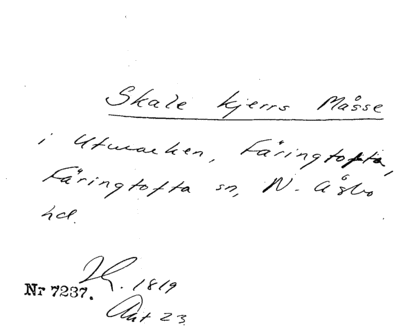 Skale kjerrs Måsse
i Utmarken, Färingtofta,
Färingtofta sn, N. Åsbo
hd.
Nr 7237. 1819
Akt 23